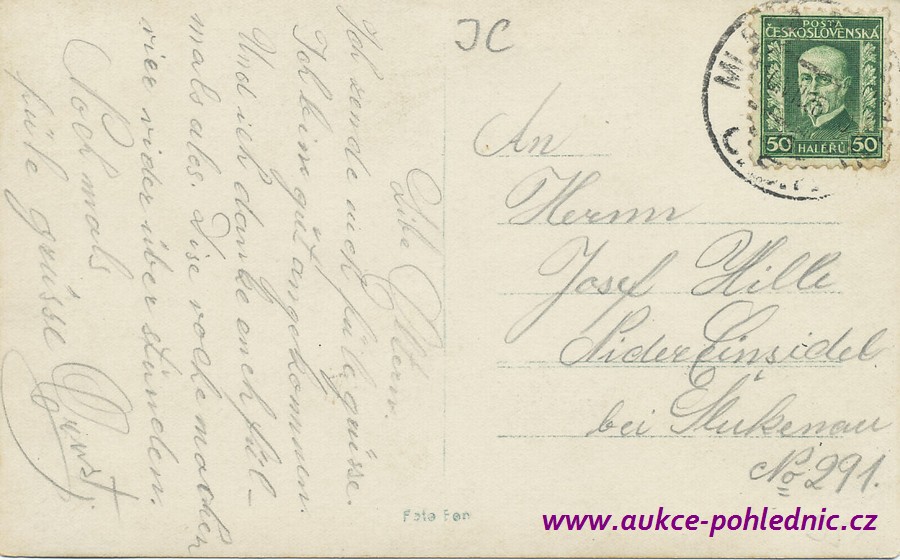 JC
POSTA
ČESKOSLOVENSKÁ
50 HALÉŘŮ 50
An
Herrn
Josef Hille
Nider Einsidel
bei Slukenau
No 291.
Libe Eltern.
Ich sende euch fül grüsse.
Ich bin gut angekommen.
Und ich danke euch fül-
mals ales. Dise voche machen
vier vider über stunden.
Noch mals
füle grüsse
Foto Fon
www.aukce-pohlednic.cz